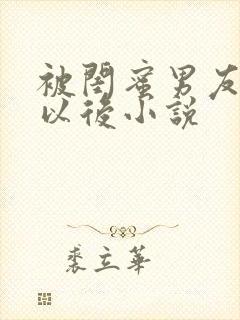 被閨蜜男友
以後小說
裘立華